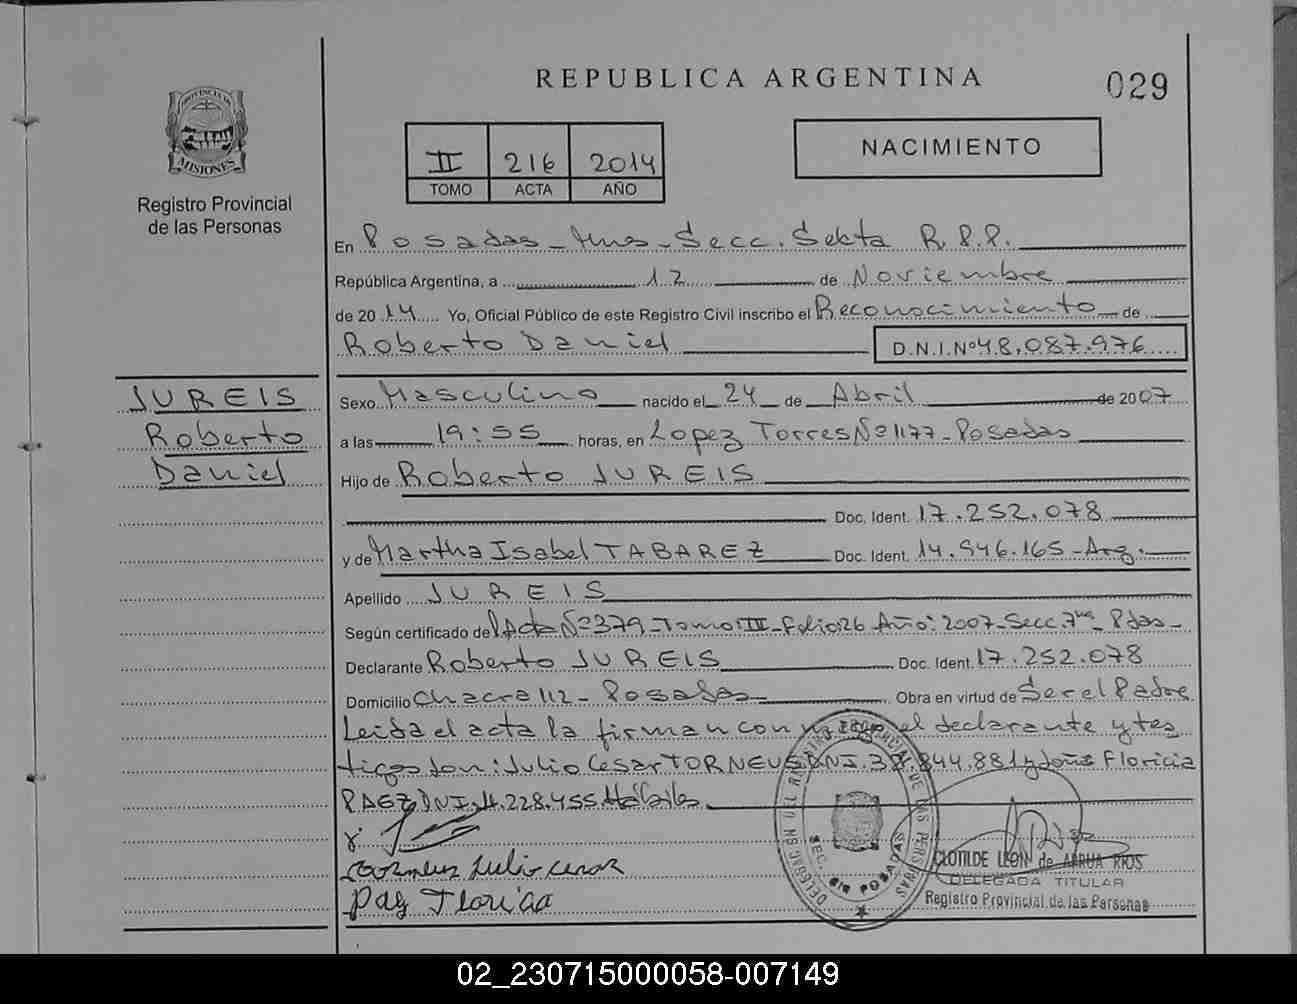 REPUBLICA ARGENTINA
029
PROVINCIA DE
MISIONES
Registro Provincial
de las Personas
II 216 2014
TOMO ACTA AÑO
NACIMIENTO
En Posadas - Mnes - Secc. Sekta R.P.P.
República Argentina, a 12 de Noviembre
de 2014 Yo, Oficial Público de este Registro Civil inscribo el Reconocimiento de
Roberto Daniel D.N.I.Nº48.087.976
JUREIS
Roberto
Daniel
Sexo Masculino nacido el 24 de Abril de 2007
a las 19:55 horas, en Lopez Torres Nº 1177 - Posadas
Hijo de Roberto JUREIS
Doc. Ident. 17.252.078
y de Martha Isabel TABAREZ Doc. Ident. 14.946.165 - Arg.
Apellido JUREIS
Según certificado del Acta Nº 379 - Tomo: III - Folio 26 Año: 2007 - Secc. 7ma - Pdas -
Declarante Roberto JUREIS Doc. Ident. 17.252.078
Domicilio Chacra 112 - Posadas Obra en virtud de Ser el Padre
Leida el acta la firman con el declarante y tes
tigos don: Julio Cesar TORNEUS DNI. 844.881 y doña Floricia
PAEZ DNI. 228.455 Habiles
Julio cesar
DELEGACION DEL REGISTRO PROVINCIAL DE LAS PERSONAS
SEC. 6ta POSADAS
CLOTILDE LEON de ARRUA RIOS
DELEGADA TITULAR
Registro Provincial de las Personas
02_230715000058-007149